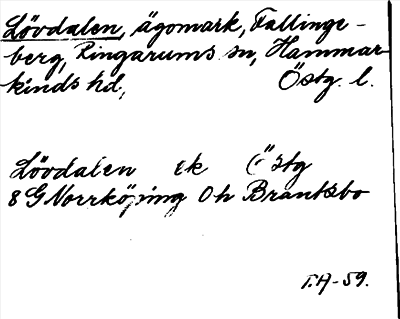 Lövdalen, ägomark, Fallinge-
berg, Ringarums sn, Hammar-
kinds hd, Östg. l.
Lövdalen ek Östg
8 G Norrköping 0h Brantsbo
T.H-59.